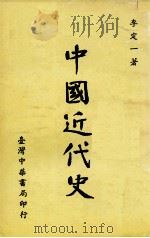 李定一著
中國近代史
臺灣中華書局印行
mtoou.info